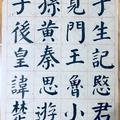 子生記愍君
見門王魯小
孫黃秦思遊
子後皇諱楚